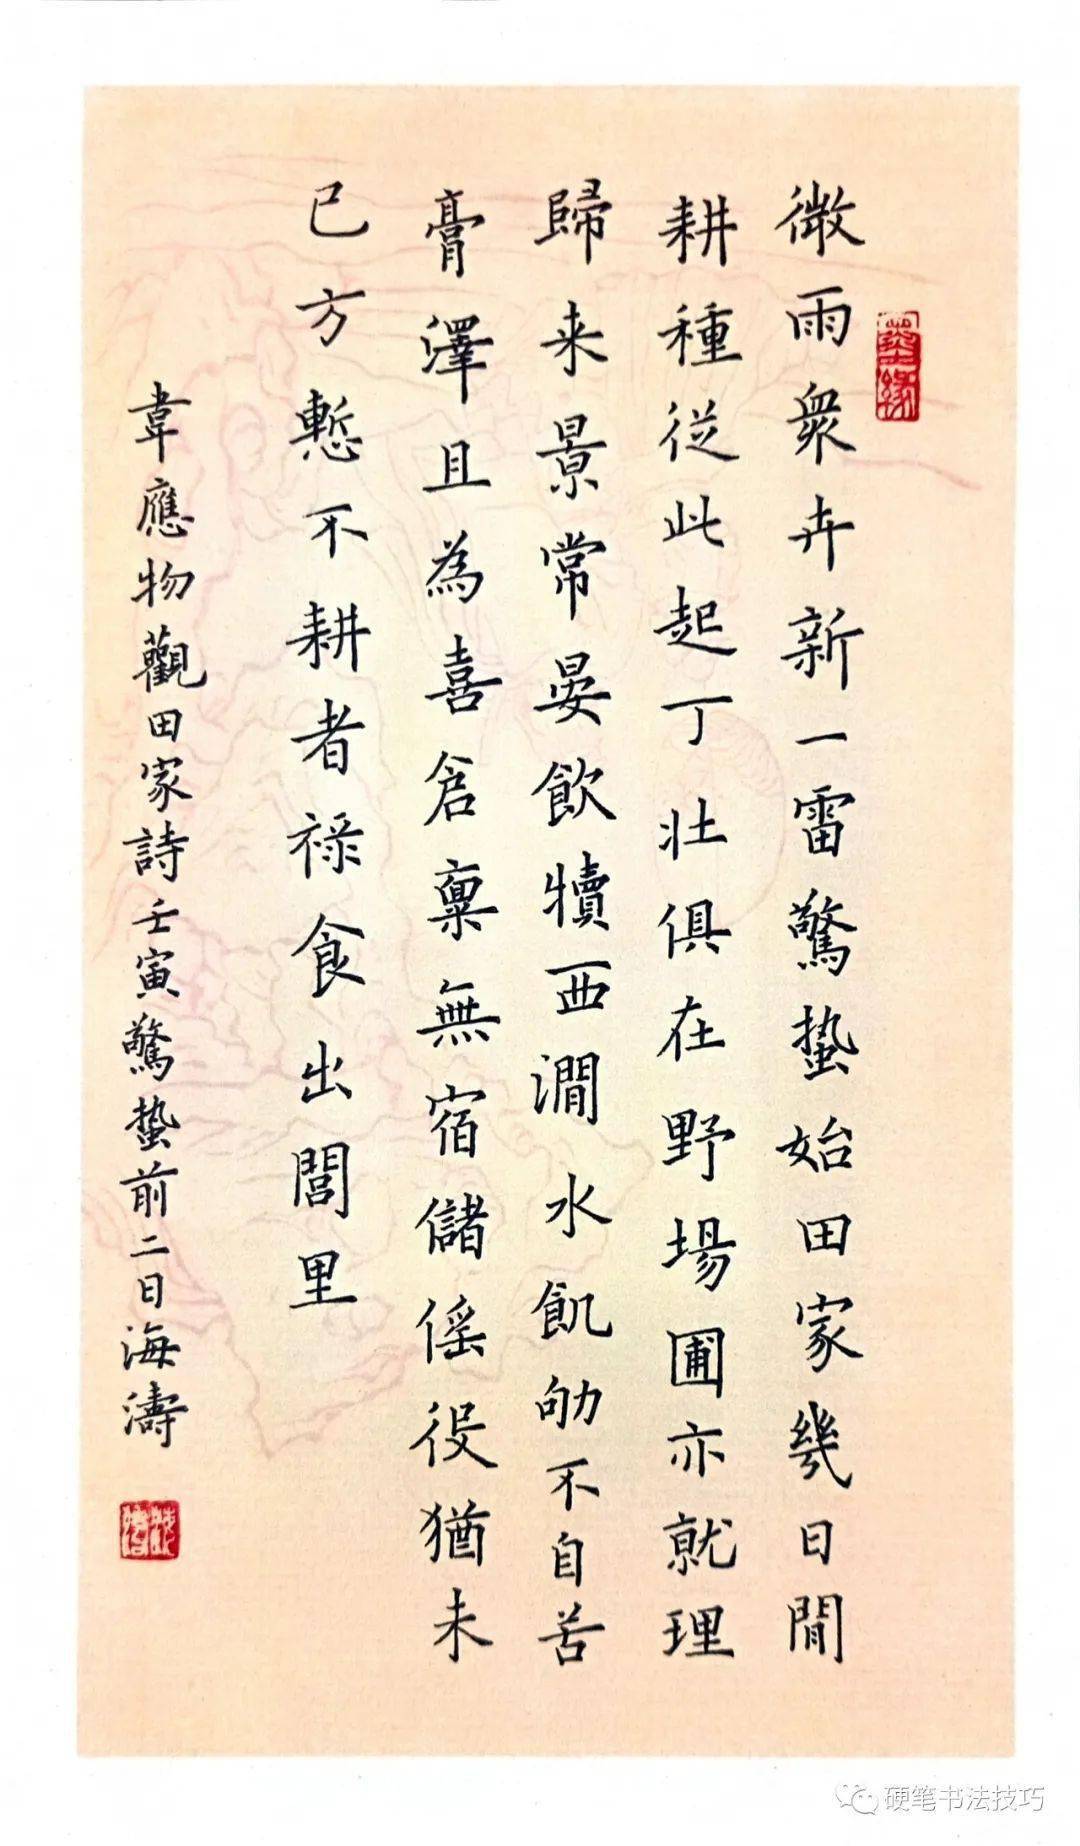 微雨衆卉新一雷驚蟄始田家幾日閒
耕種從此起丁壯俱在野場圃亦就理
歸来景常晏飲犢西澗水飢劬不自苦
膏澤且為喜倉稟無宿儲徭役猶未
已方慙不耕者祿食出閭里
韋應物觀田家詩壬寅驚蟄前二日海濤
硬笔书法技巧